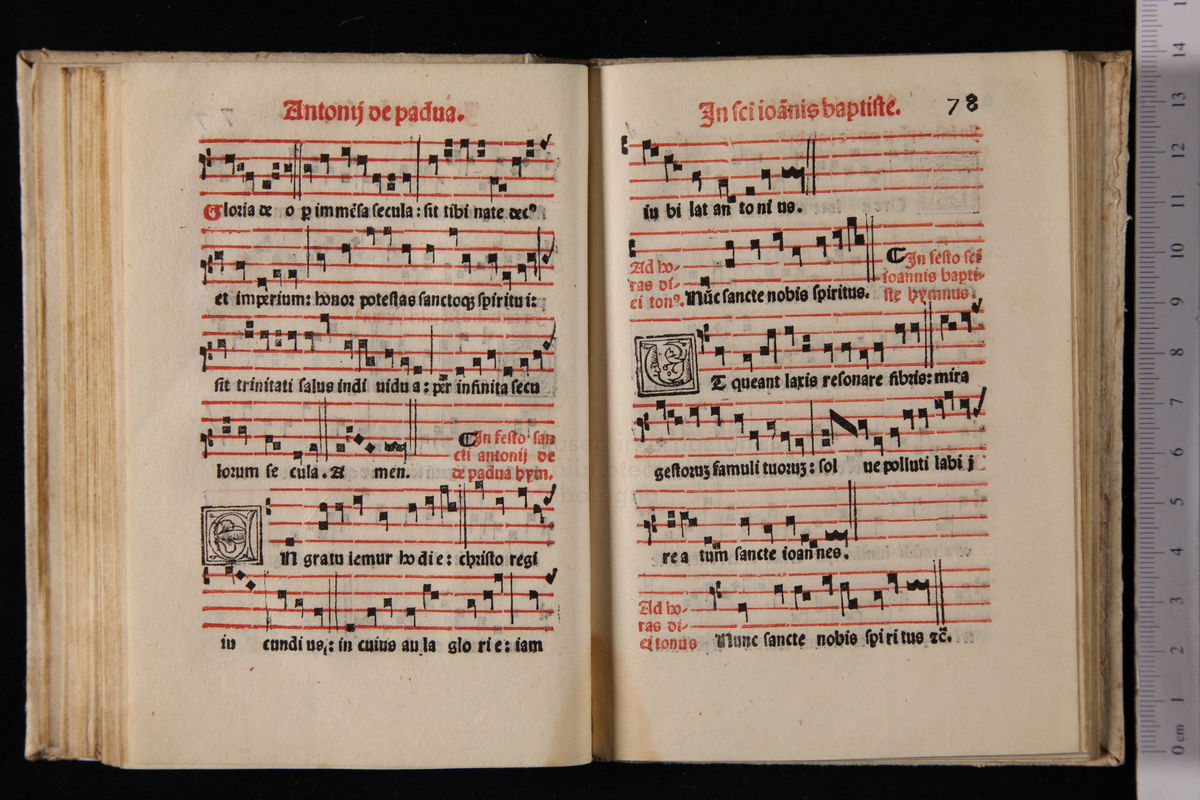 Antonij de padua.
Gloria deo p immēsa secula: sit tibi nate decꝰ
et imperium: honor potestas sanctoqꝫ spiritui:
sit trinitati salus indi uidua: per infinita secu
lorum se cula. A men.
In festo san
cti antonij de
de padua hym.
EN gratulemur hodie: christo regi
iu cundius: in cuius au la glo rie: iam
In scī ioānis baptiste.
78
iu bi lat an to ni us.
Ad ho-
ras di-
ei tonꝰ.
Nūc sancte nobis spiritus.
In festo sci
ioannis bapti-
ste hymnus.
UT queant laxis resonare fibris: mira
gestoruꝫ famuli tuoruꝫ: sol ue polluti labi j
re a tum sancte ioannes.
Ad ho-
ras di-
ei tonus
Nunc sancte nobis spiritus ⁊c̄.
14
13
12
11
10
9
8
7
6
5
4
3
2
1
0 cm